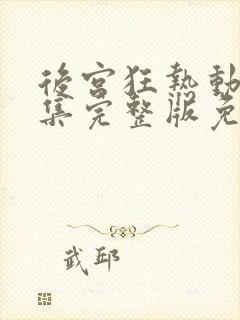 後宮狂熱動
集完整版免
武邱